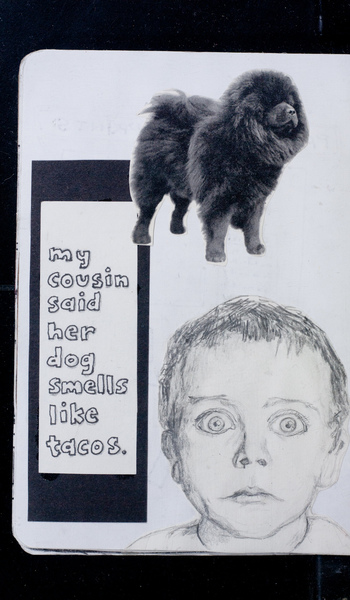 my
cousin
said
her
dog
smells
like
tacos.